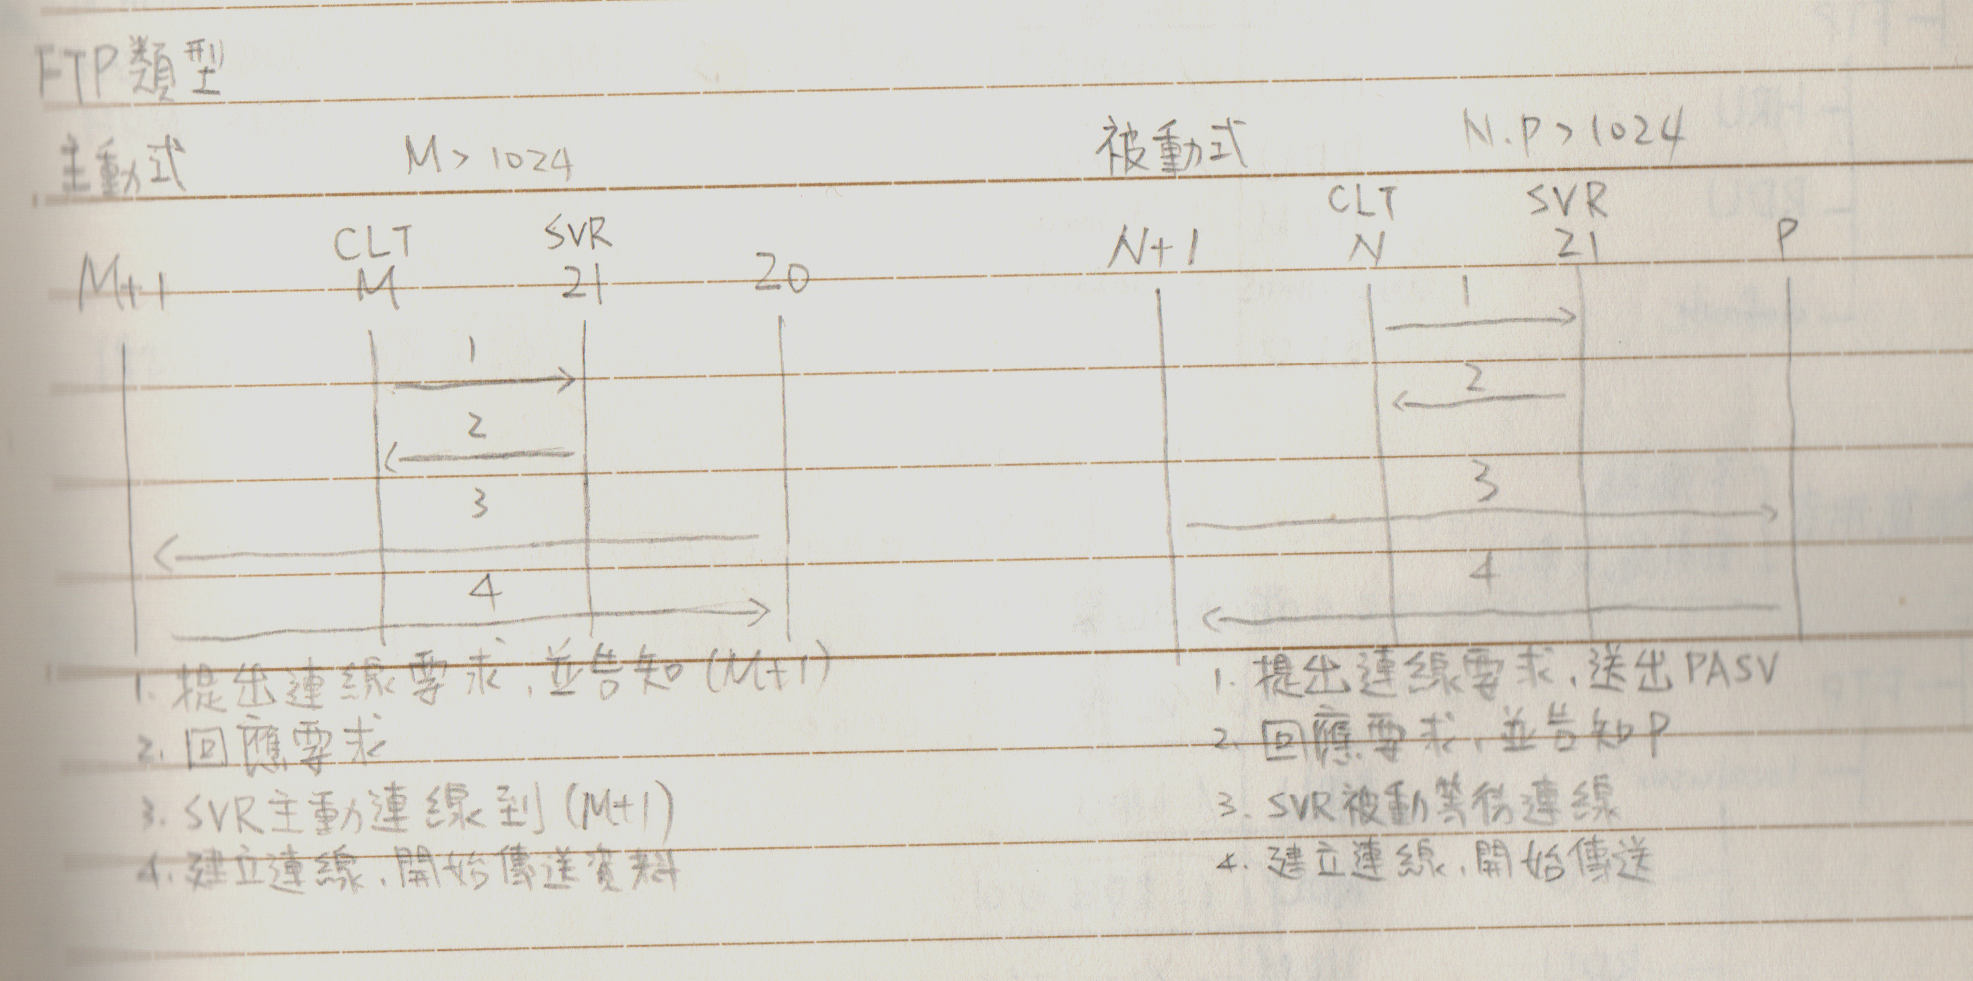 FTP類型
主動式 M > 1024
CLT SVR
M+1 M 21 20
1
2
3
4
1. 提出連線要求,並告知(M+1)
2. 回應要求
3. SVR主動連線到(M+1)
4. 建立連線,開始傳送資料
被動式 N.P > 1024
CLT SVR
N+1 N 21 P
1
2
3
4
1. 提出連線要求,送出PASV
2. 回應要求,並告知P
3. SVR被動等待連線
4. 建立連線,開始傳送